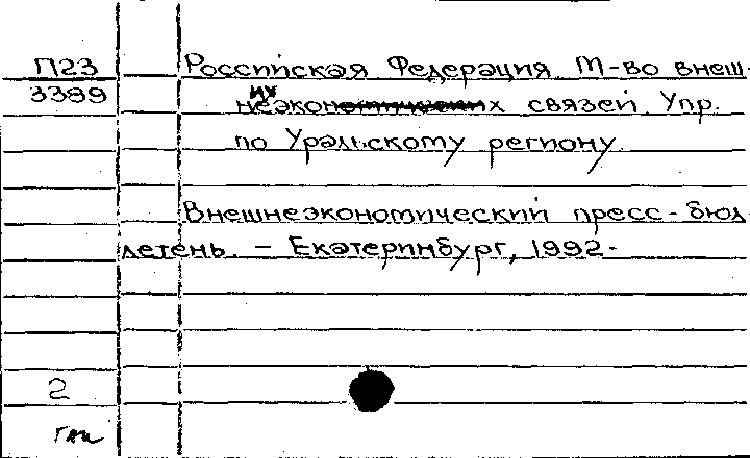 П23 Российская Федерация М-во внеш-
3399 их неэкономических связей. Упр.
по Уральскому региону.
Внешнеэкономический пресс-бюл
летень. – Екатеринбург, 1992-
2